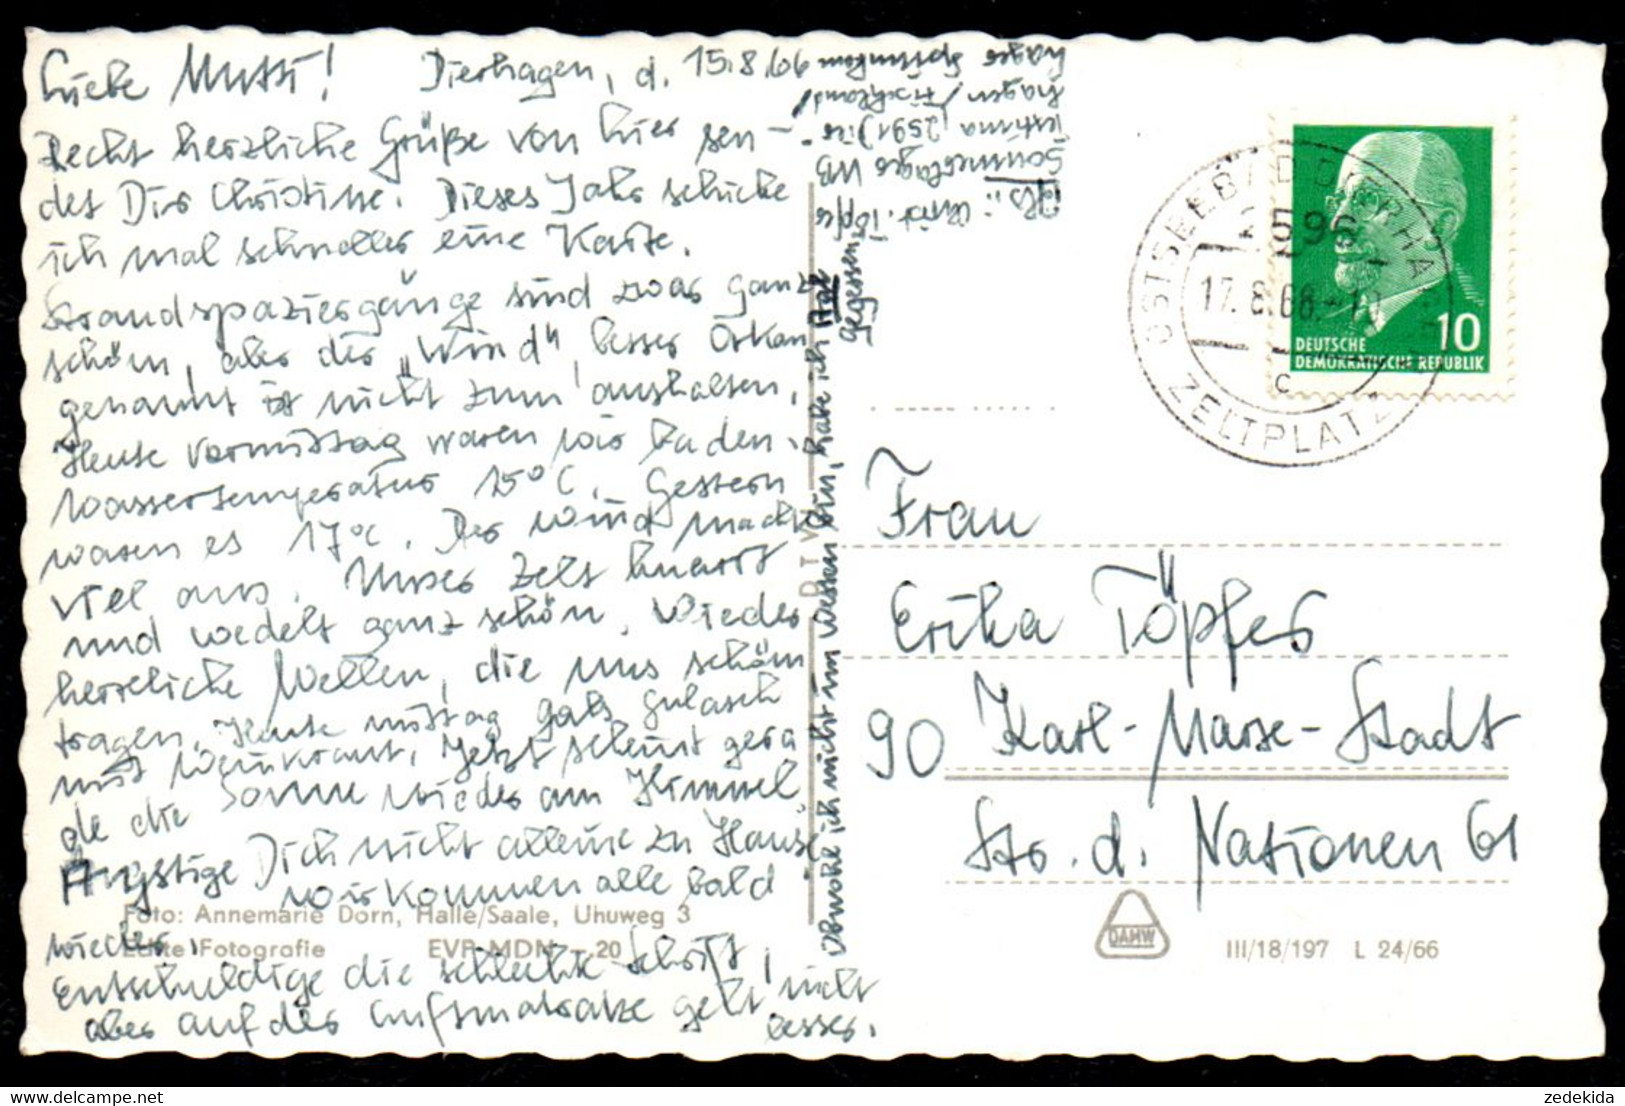 Liebe Mutti! Dierhagen, d. 15.8.66
Recht herzliche Grüße von hier sen-
det Dir Christine. Dieses Jahr schicke
ich mal schneller eine Karte.
Strandspaziergänge sind zwar ganz
schön, aber der „Wind", besser Orkan
genannt ist nicht zum aushalten.
Heute Vormittag waren wir baden.
Wassertemperatur 15°C. Gestern
waren es 17°C. Der Wind macht
viel aus. Unser Zelt knarrt
und wedelt ganz schön. Wieder
herrliche Wellen, die uns schön
tragen. Heute mittag gabs Gulasch
mit Weinkraut. Jetzt scheint gera
de die Sonne wieder am Himmel.
Ängstige Dich nicht alleine zu Haus!
wir kommen alle bald
wieder.
Entschuldige die schlechte Schrift,
aber auf der Luftmatratze geht's nicht
besser.
Obwohl ich nicht im Westen bin, habe ich Aal
gegessen
Abs.: Christ. Töpfer
Sommerlager VEB
2591 Dier-
hagen/Fischland
Lager
Frau
Erika Töpfer
90 Karl-Marx-Stadt
Str. d. Nationen 61
OSTSEEBAD DIERHAGEN
2596
17.8.66.-10
c
ZELTPLATZ
10
DEUTSCHE
DEMOKRATISCHE REPUBLIK
Foto: Annemarie Dorn, Halle/Saale, Uhuweg 3
Echte Fotografie EVP MDN -.20
DAMW
III/18/197 L 24/66
https://www.delcampe.net
zedekida